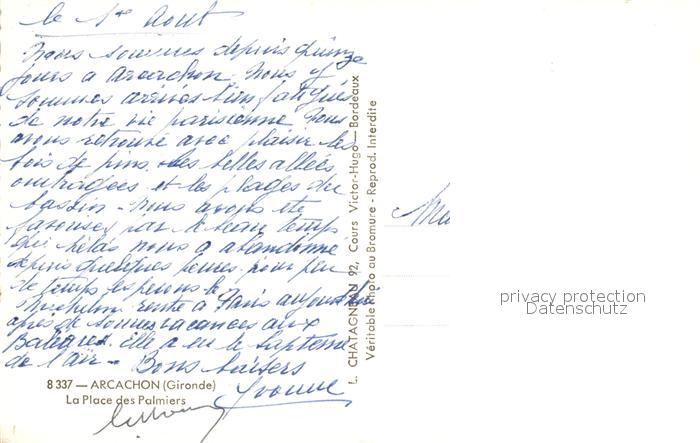 le 1er Août
Nous sommes depuis quinze
jours à Arcachon. Nous y
sommes arrivés bien fatigués
de notre vie parisienne. Nous
avons retrouvé avec plaisir les
bois de pins, les belles allées
ombragées et les plages du
bassin. Nous avons été
favorisés par le beau temps
qui hélas nous a abandonné
depuis quelques heures, pour peu
de temps espérons le.
rentre à Paris aujourd'hui
après de bonnes vacances aux
Baléares. elle a eu le baptême
de l'air - Bons baisers
Yvonne
8 337 — ARCACHON (Gironde)
La Place des Palmiers
L. CHATAGNEAU 92, Cours Victor-Hugo — Bordeaux
Véritable Photo au Bromure - Reprod. Interdite
privacy protection
Datenschutz